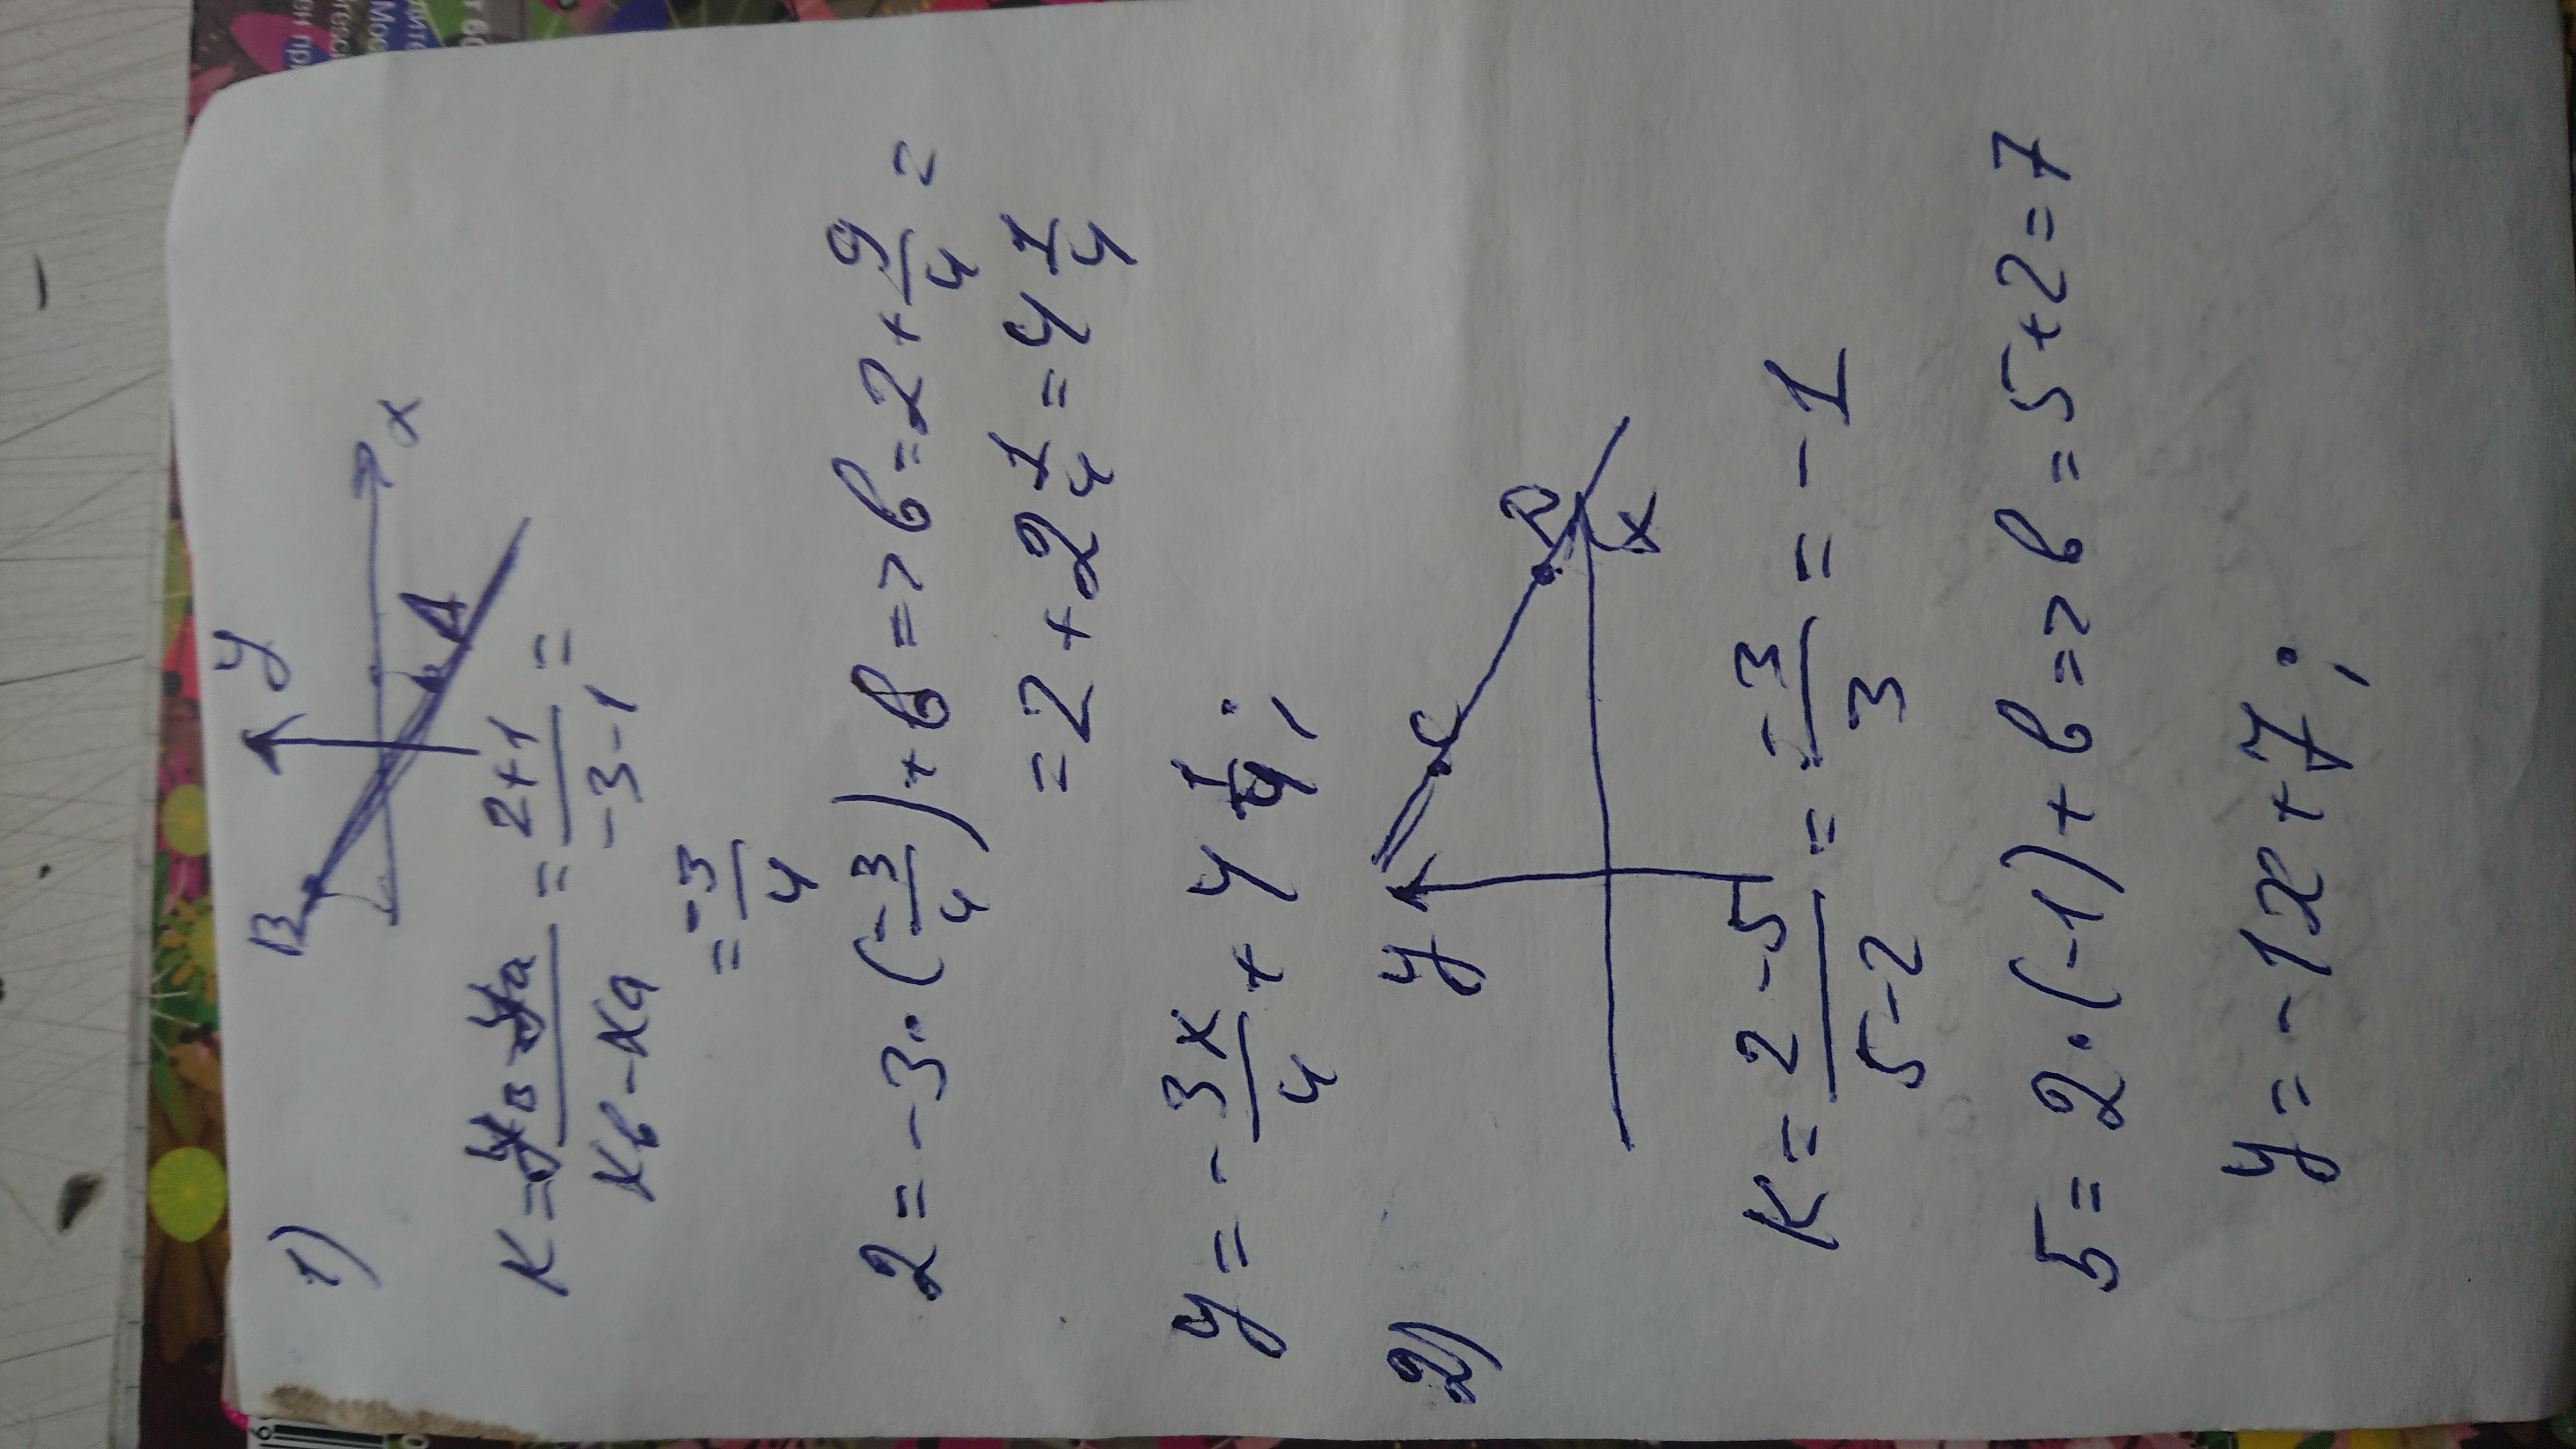 1)
y
x
B
A
К = yв - ya / xв - xa = 2+1 / -3-1 =
= -3/4
2 = -3·(-3/4) + в => в = 2 + 9/4 =
= 2 + 2 1/4 = 4 1/4
y = -3x/4 + 4 1/4;
2)
y
C
D
x
К = 2-5 / 5-2 = -3/3 = -1
5 = 2·(-1) + в => в = 5+2 = 7
y = -1x + 7;